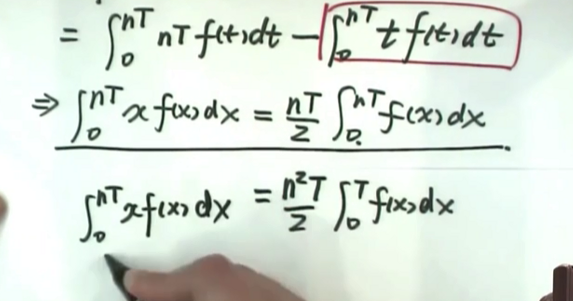 = ∫₀ⁿᵀ nT f(t)dt − ∫₀ⁿᵀ t f(t)dt
⇒ ∫₀ⁿᵀ x f(x)dx = nT/2 ∫₀ⁿᵀ f(x)dx
∫₀ⁿᵀ x f(x)dx = n²T/2 ∫₀ᵀ f(x)dx